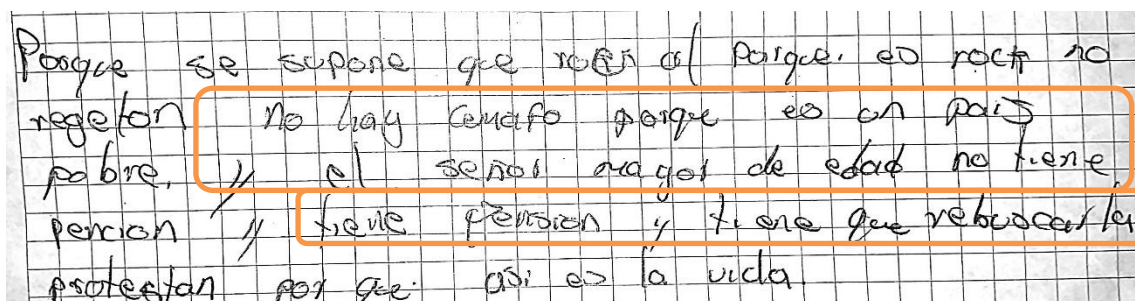 Porque se supone que rock al parque. es rock no
regeton no hay cemafo porque es un pais
pobre, // el señor magor de edad no tiene
pencion // tiene pension y tiene que rebuscarla
protestan por que. asi es la vida.